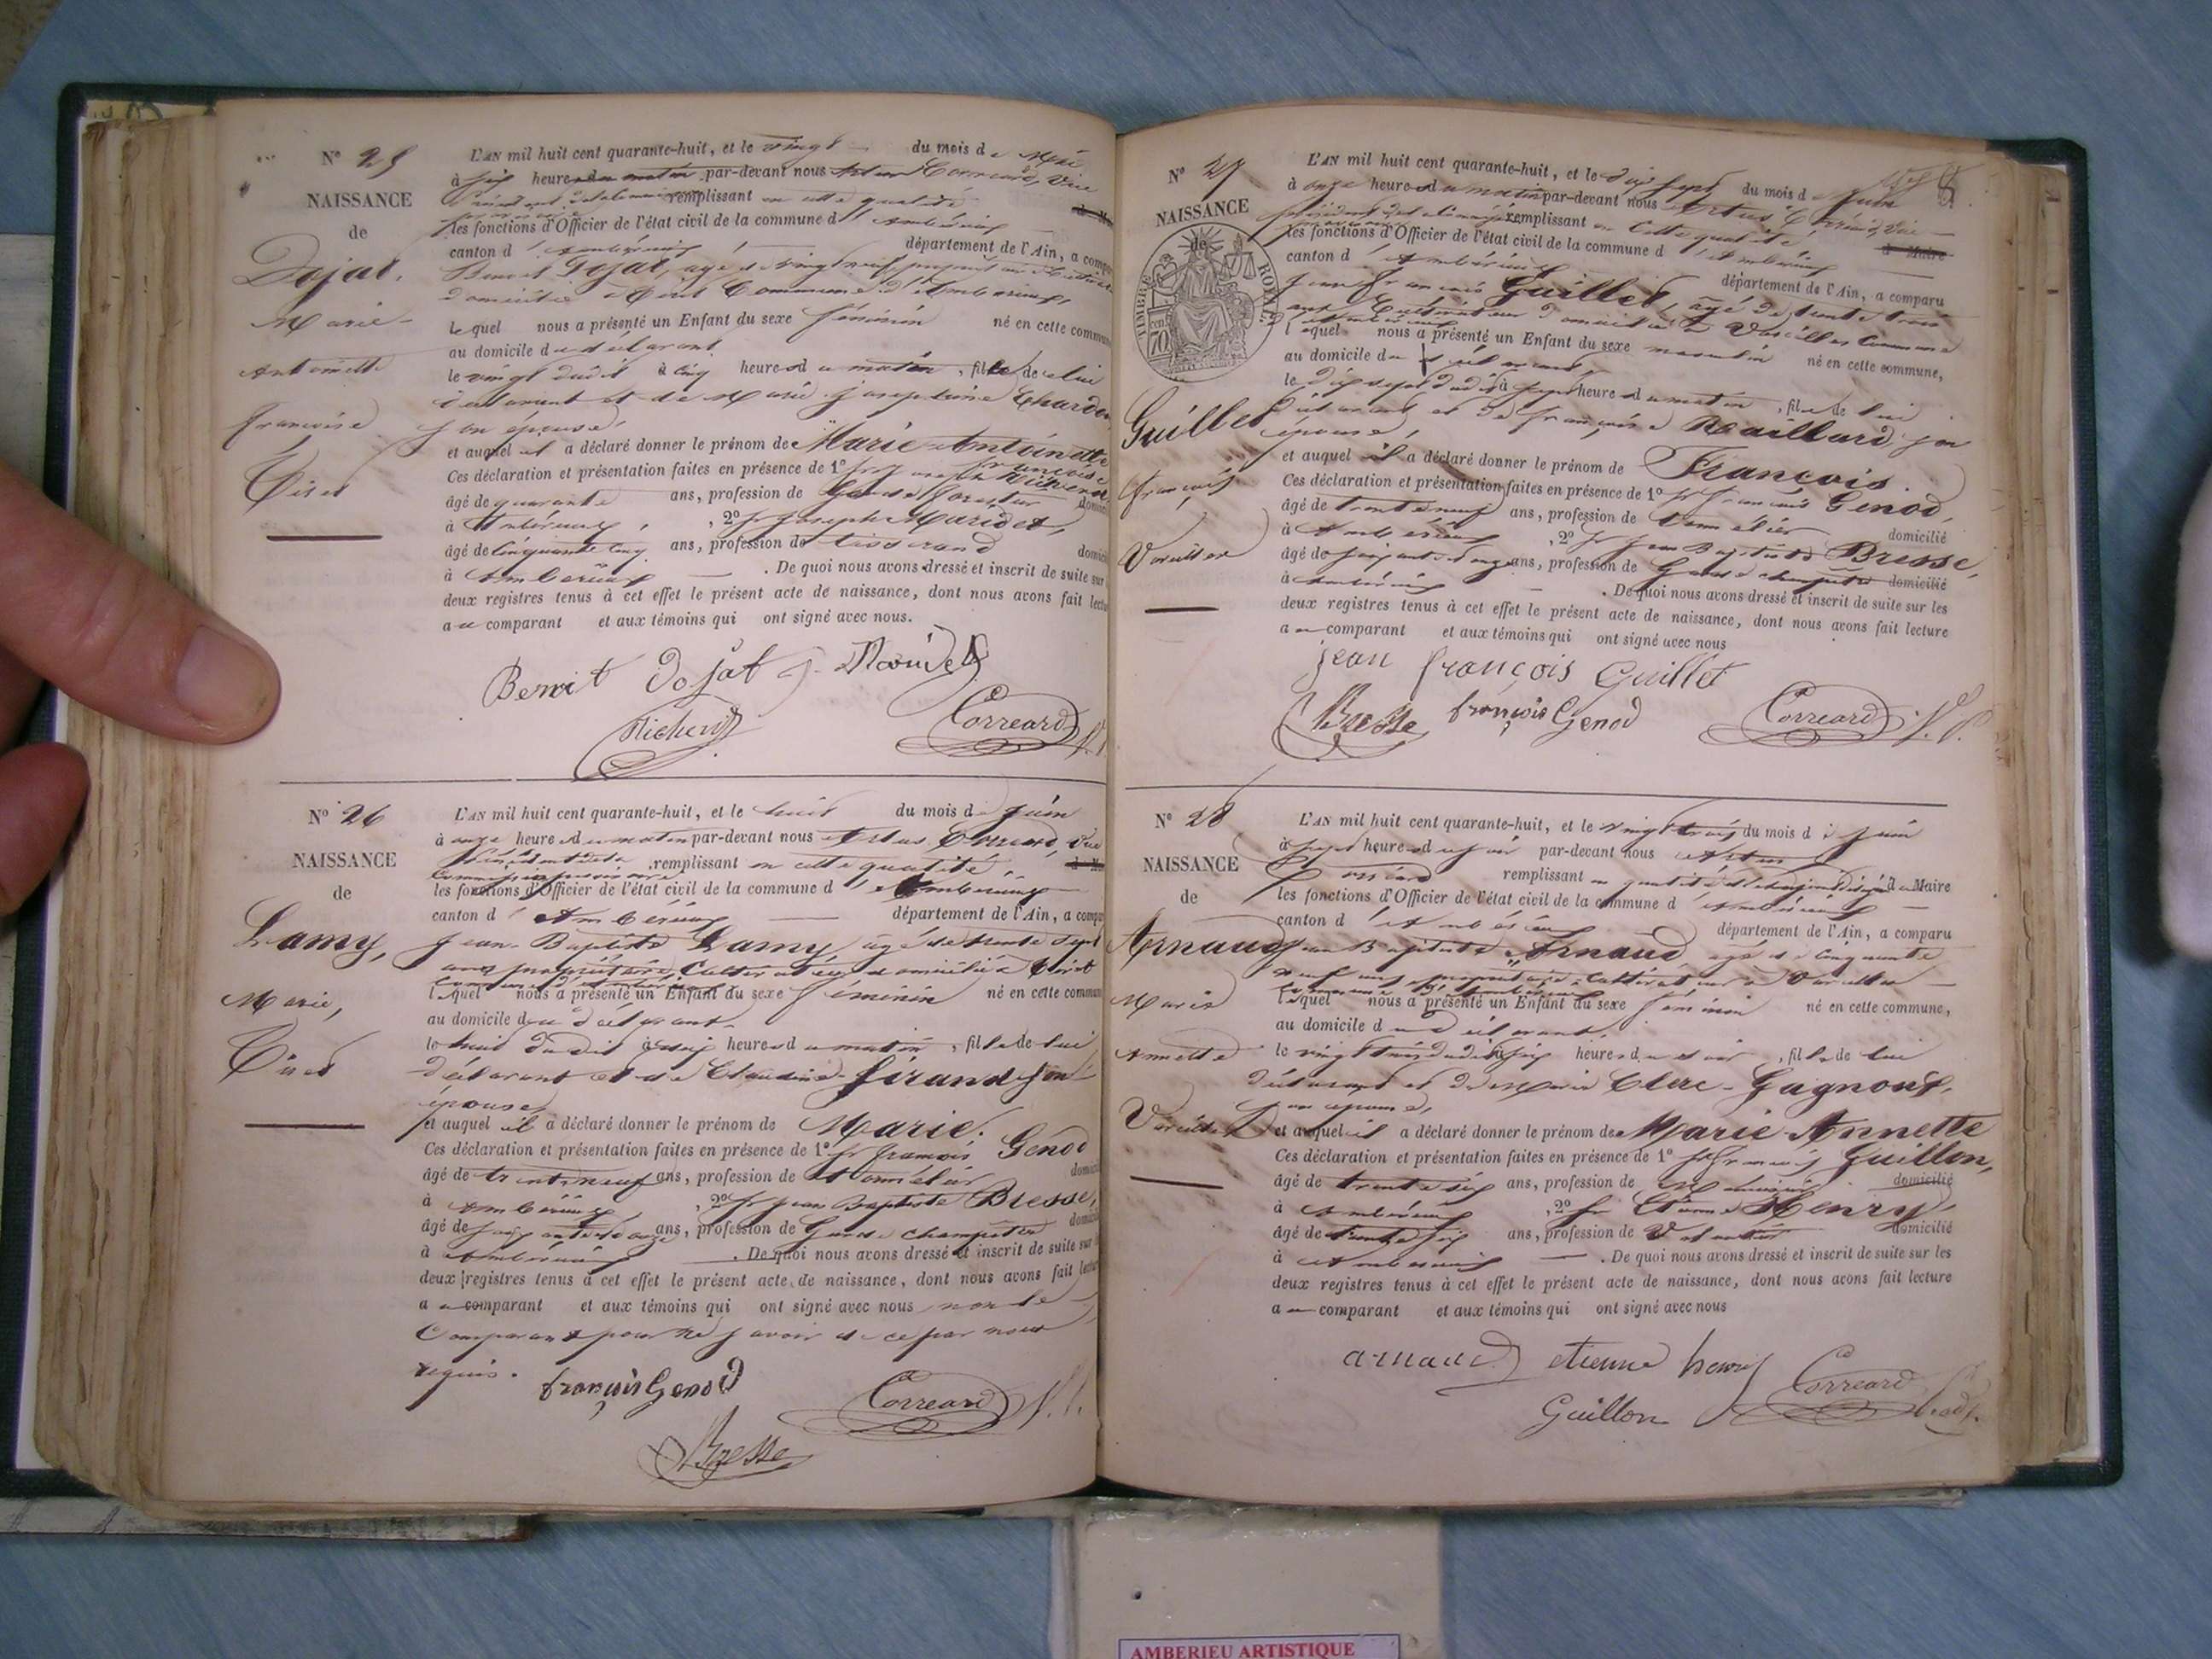 N° 25
NAISSANCE
de
Dojat,
Marie
Antoinette
Françoise
Tiret
L'AN mil huit cent quarante-huit, et le vingt du mois de Mai
à six heures du matin par-devant nous Artus Correard, Vice
remplissant en cette qualité
les fonctions d'Officier de l'état civil de la commune d'Ambérieux
canton d'Ambérieux département de l'Ain, a comparu
Benoit Dojat, âgé de vingt neuf
domicilié à Tiret Commune d'Ambérieux,
lequel nous a présenté un Enfant du sexe féminin né en cette commune
au domicile du déclarant
le vingt dudit à cinq heures du matin, fille de lui
déclarant et de Marie Josephine Chardon
son épouse
et auquel il a déclaré donner le prénom de Marie Antoinette
Françoise
Ces déclaration et présentation faites en présence de 1°
âgé de quarante ans, profession de Garde forestier
à Ambérieux, 2° Sr Joseph Maridet,
âgé de cinquante cinq ans, profession de tisserand
à Ambérieux . De quoi nous avons dressé et inscrit de suite sur
deux registres tenus à cet effet le présent acte de naissance, dont nous avons fait lecture
au comparant et aux témoins qui ont signé avec nous.
Benoit Dojat
Correard
N° 26
NAISSANCE
de
Lamy,
Marie,
Tiret
L'AN mil huit cent quarante-huit, et le huit du mois de Juin
à onze heures du matin par-devant nous Artus Correard, Vice
remplissant en cette qualité
les fonctions d'Officier de l'état civil de la commune d'Ambérieux
canton d'Ambérieux département de l'Ain, a comparu
Jean-Baptiste Lamy, âgé de trente sept
ans propriétaire Cultivateur domicilié à Tiret
commune d'Ambérieux
lequel nous a présenté un Enfant du sexe féminin né en cette commune
au domicile du déclarant
le huit dudit à six heures du matin, fille de lui
déclarant et de Claudine Girand son
épouse,
et auquel il a déclaré donner le prénom de Marie.
Ces déclaration et présentation faites en présence de 1° Sr François Genod
âgé de trente neuf ans, profession de tonnelier
à Ambérieux, 2° Sr Jean Baptiste Bresse,
âgé de soixante onze ans, profession de Garde champêtre
à Ambérieux . De quoi nous avons dressé et inscrit de suite sur
deux registres tenus à cet effet le présent acte de naissance, dont nous avons fait lecture
au comparant et aux témoins qui ont signé avec nous non le
Comparant pour ne savoir de ce par nous
requis.
françois Genod
Correard
Bresse
N° 27
NAISSANCE
de
TIMBRE ROYAL
70
Guillet
François
Vareilles
L'AN mil huit cent quarante-huit, et le dix sept du mois de Juin
à onze heures du matin par-devant nous Artus Correard, Vice
remplissant en cette qualité
les fonctions d'Officier de l'état civil de la commune d'Ambérieux
du Maire
canton d'Ambérieux département de l'Ain, a comparu
Jean François Guillet, âgé de trente trois
ans Cultivateur domicilié à Vareilles Commune
lequel nous a présenté un Enfant du sexe masculin né en cette commune,
au domicile du déclarant,
le dix sept dudit à sept heures du matin, fils de lui
déclarant et de françoise Raillard, son
épouse,
et auquel il a déclaré donner le prénom de François.
Ces déclaration et présentation faites en présence de 1° Sr François Genod,
âgé de trente neuf ans, profession de tonnelier domicilié
à Ambérieux, 2° Sr Jean Baptiste Bresse,
âgé de soixante onze ans, profession de Garde champêtre domicilié
à Ambérieux . De quoi nous avons dressé et inscrit de suite sur les
deux registres tenus à cet effet le présent acte de naissance, dont nous avons fait lecture
au comparant et aux témoins qui ont signé avec nous
jean françois Guillet
Bresse françois Genod Correard
N° 28
NAISSANCE
de
Arnaud
Marie
Annette
Vareilles
L'AN mil huit cent quarante-huit, et le vingt trois du mois de Juin
à sept heures du soir par-devant nous Artus
Correard remplissant en qualité du Maire
les fonctions d'Officier de l'état civil de la commune d'Ambérieux
canton d'Ambérieux département de l'Ain, a comparu
Jean Baptiste Arnaud, âgé de Cinquante
neuf ans, propriétaire Cultivateur à Vareilles
commune d'Ambérieux
lequel nous a présenté un Enfant du sexe féminin né en cette commune,
au domicile du déclarant,
le vingt trois dudit à six heures du soir, fille de lui
déclarant et de Marie Clerc-Gagnoux,
son épouse,
et auquel il a déclaré donner le prénom de Marie Annette
Ces déclaration et présentation faites en présence de 1° Sr François Guillon,
âgé de trente six ans, profession de domicilié
à Ambérieux, 2° Sr Etienne Henry,
âgé de trente six ans, profession de domicilié
à Ambérieux . De quoi nous avons dressé et inscrit de suite sur les
deux registres tenus à cet effet le présent acte de naissance, dont nous avons fait lecture
au comparant et aux témoins qui ont signé avec nous
arnaud etienne henry Correard
Guillon
AMBERIEU ARTISTIQUE